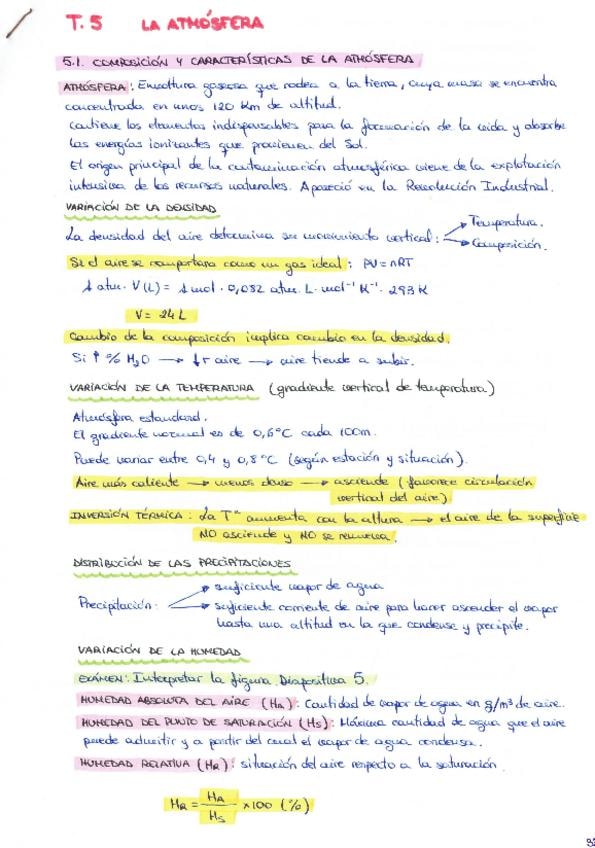 T.5 LA ATMÓSFERA
5.1. COMPOSICIÓN Y CARACTERÍSTICAS DE LA ATMÓSFERA
ATMÓSFERA: Envoltura gaseosa que rodea a la tierra, cuya masa se encuentra
concentrada en unos 120 Km de altitud.
Contiene los elementos indispensables para la formación de la vida y absorbe
las energías ionizantes que provienen del Sol.
El origen principal de la contaminación atmosférica viene de la explotación
intensiva de los recursos naturales. Apareció en la Revolución Industrial.
VARIACIÓN DE LA DENSIDAD
La densidad del aire determina su movimiento vertical: → Temperatura.
→ Composición.
Si el aire se comportara como un gas ideal: PV=nRT
1 atm · V(L) = 1 mol · 0,082 atm · L · mol⁻¹ K⁻¹ · 293 K
V = 24 L
Cambio de la composición implica cambio en la densidad.
Si ↑ % H₂O → ↓r aire → aire tiende a subir.
VARIACIÓN DE LA TEMPERATURA (gradiente vertical de temperatura)
Atmósfera estandard.
El gradiente normal es de 0,6°C cada 100m.
Puede variar entre 0,4 y 0,8°C (según estación y situación).
Aire más caliente → menos denso → asciende (favorece circulación
vertical del aire).
INVERSIÓN TÉRMICA: La Tª aumenta con la altura → el aire de la superficie
NO asciende y NO se renueva.
DISTRIBUCIÓN DE LAS PRECIPITACIONES
→ suficiente vapor de agua
Precipitación: → suficiente corriente de aire para hacer ascender el vapor
hasta una altitud en la que condense y precipite.
VARIACIÓN DE LA HUMEDAD
EXÁMEN: Interpretar la figura. Diapositiva 5.
HUMEDAD ABSOLUTA DEL AIRE (HA): Cantidad de vapor de agua en g/m³ de aire.
HUMEDAD DEL PUNTO DE SATURACIÓN (Hs): Máxima cantidad de agua que el aire
puede admitir y a partir del cual el vapor de agua condensa.
HUMEDAD RELATIVA (HR): situación del aire respecto a la saturación.
HR = HA / Hs × 100 (%)